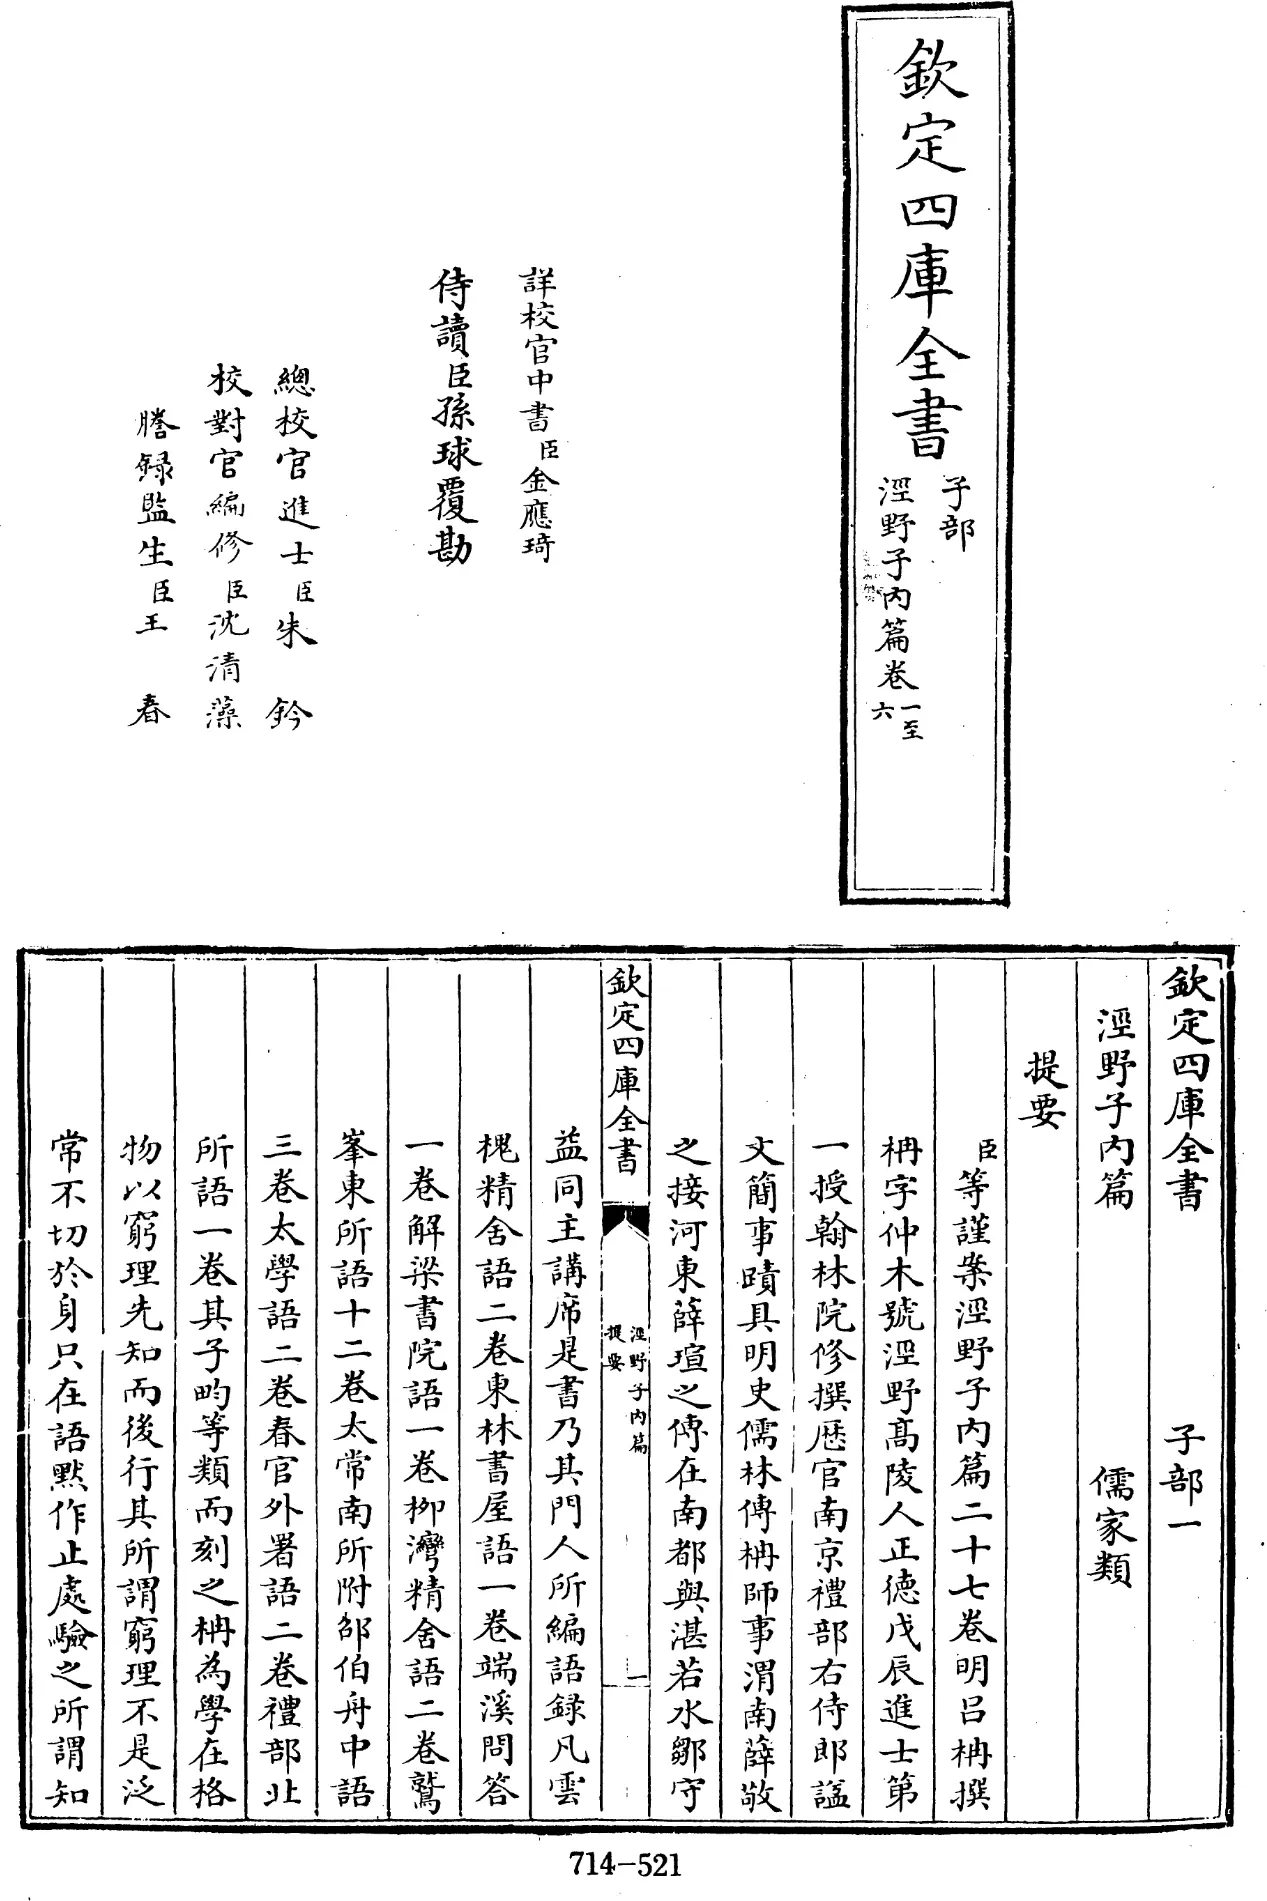 欽定四庫全書
子部
涇野子内篇卷一至六
詳校官中書臣金應琦
侍讀臣孫球覆勘
總校官進士臣朱鈐
校對官編修臣沈清藻
謄録監生臣王春
欽定四庫全書 子部一
涇野子内篇 儒家類
提要
臣等謹案涇野子内篇二十七卷明吕柟撰
柟字仲木號涇野髙陵人正徳戊辰進士第
一授翰林院修撰歴官南京禮部右侍郎諡
文簡事蹟具明史儒林傳柟師事渭南薛敬
之接河東薛瑄之傳在南都與湛若水鄒守
欽定四庫全書
涇野子内篇
提要
一
益同主講席是書乃其門人所編語録凡雲
槐精舍語二卷東林書屋語一卷端溪問答
一卷解梁書院語一卷柳灣精舍語二卷鷲
峯東所語十二卷太常南所附邰伯舟中語
三卷太學語二卷春官外署語二卷禮部北
所語一卷其子畇等類而刻之柟為學在格
物以窮理先知而後行其所謂窮理不是泛
常不切於身只在語默作止處驗之所謂知
714-521